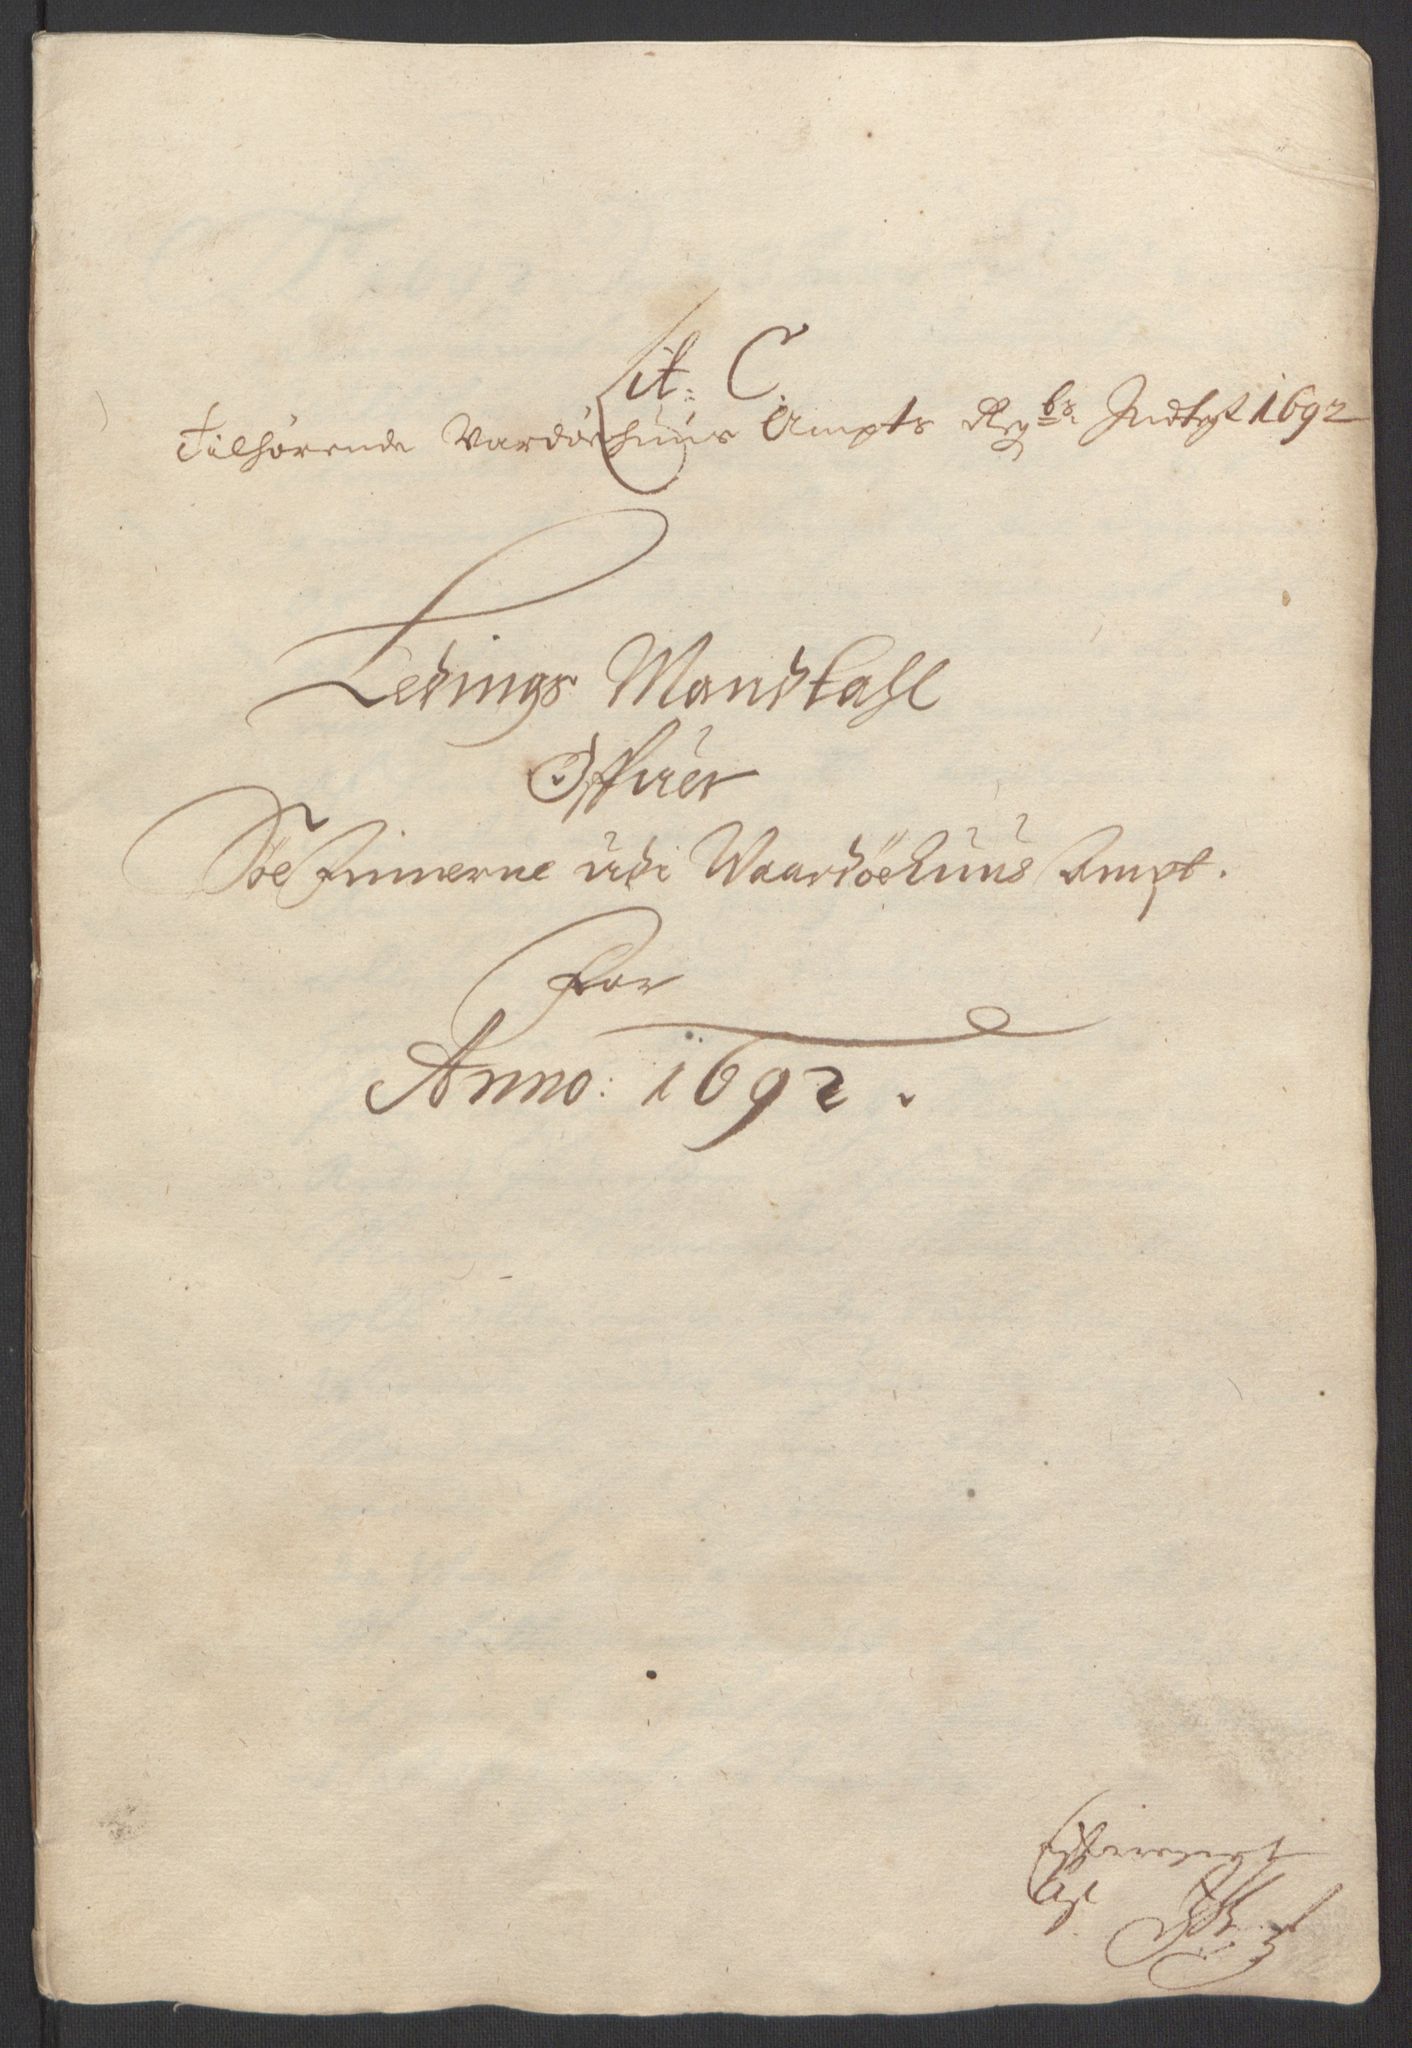 Lit: C.
Tilhörende Vardöehuus Ampts Regbs Indtegt 1692
Ledings Mandtahl
Offuer
Söe Finnerne udi Waardöehuus Ampt.
For
Anno: 1692.